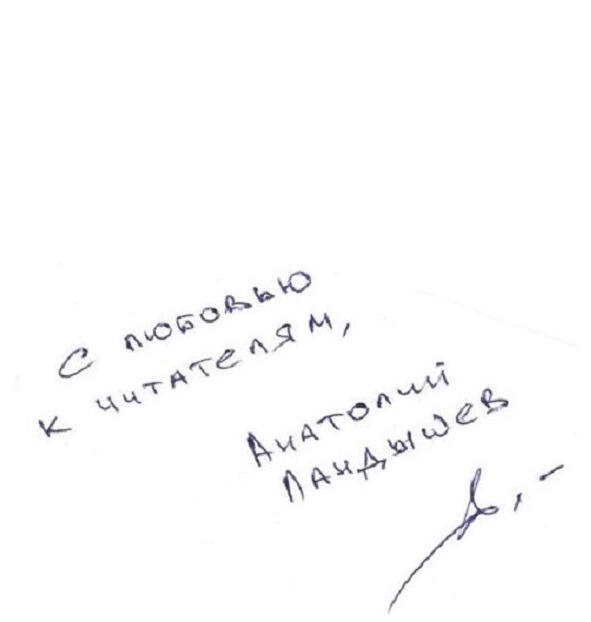 С любовью
к читателям,
Анатолий
Ландышев